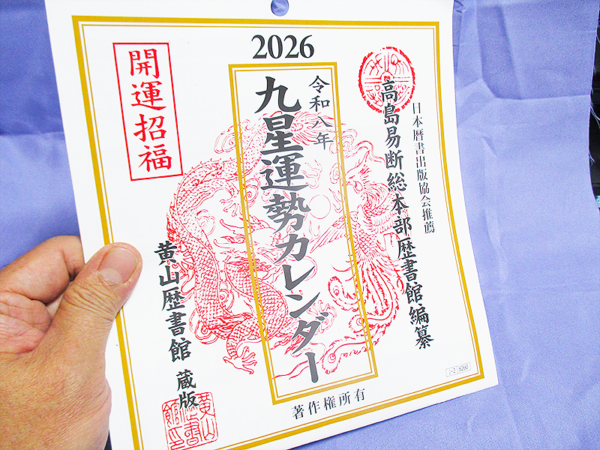 2026
日本暦書出版協会推薦
高島易断総本部歴書館編纂
令和八年
九星運勢カレンダー
開運招福
黄山歴書館 蔵版
著作権所有